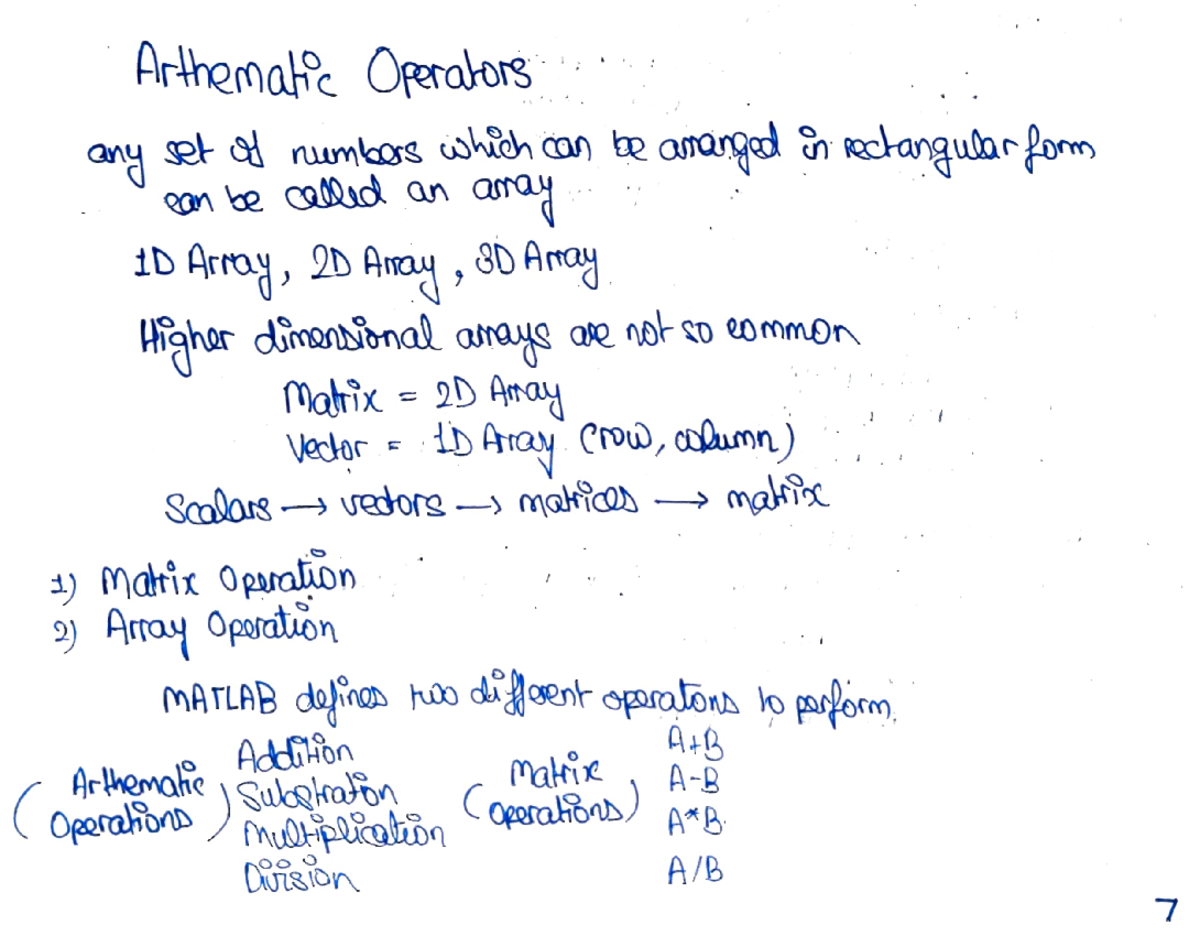 Arthematic Operators
any set of numbers which can be arranged in rectangular form
can be called an array
1D Array, 2D Array, 3D Array
Higher dimensional arrays are not so common
Matrix = 2D Array
Vector = 1D Array (row, column)
Scalars → vectors → matrices → matrix
1) Matrix Operation
2) Array Operation
MATLAB defines two different operations to perform.
(Arthematic Operations)
Addition
Substraton
Multiplication
Division
(Matrix operations)
A+B
A-B
A*B
A/B
7